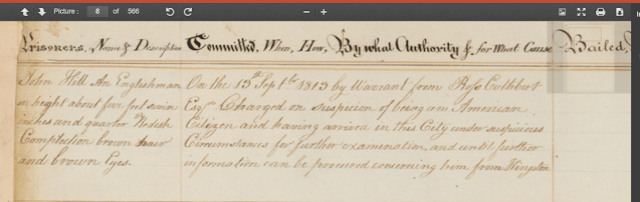 Picture : 8 of 566
Prisoners, Name & Description Committed, When, How, By what Authority &. for What Cause Bailed,
John Hill An Englishman On the 13th Sept 1813 by Warrant from Ross Cuthbert
in height about five feet seven Esqr Charged on suspicion of being an American
inches and quarter Redish Citizen and having arrived in this City under suspicious
Complection brown hair Circumstances for further examination, and until further
and brown Eyes. information can be procured concerning him from Kingston